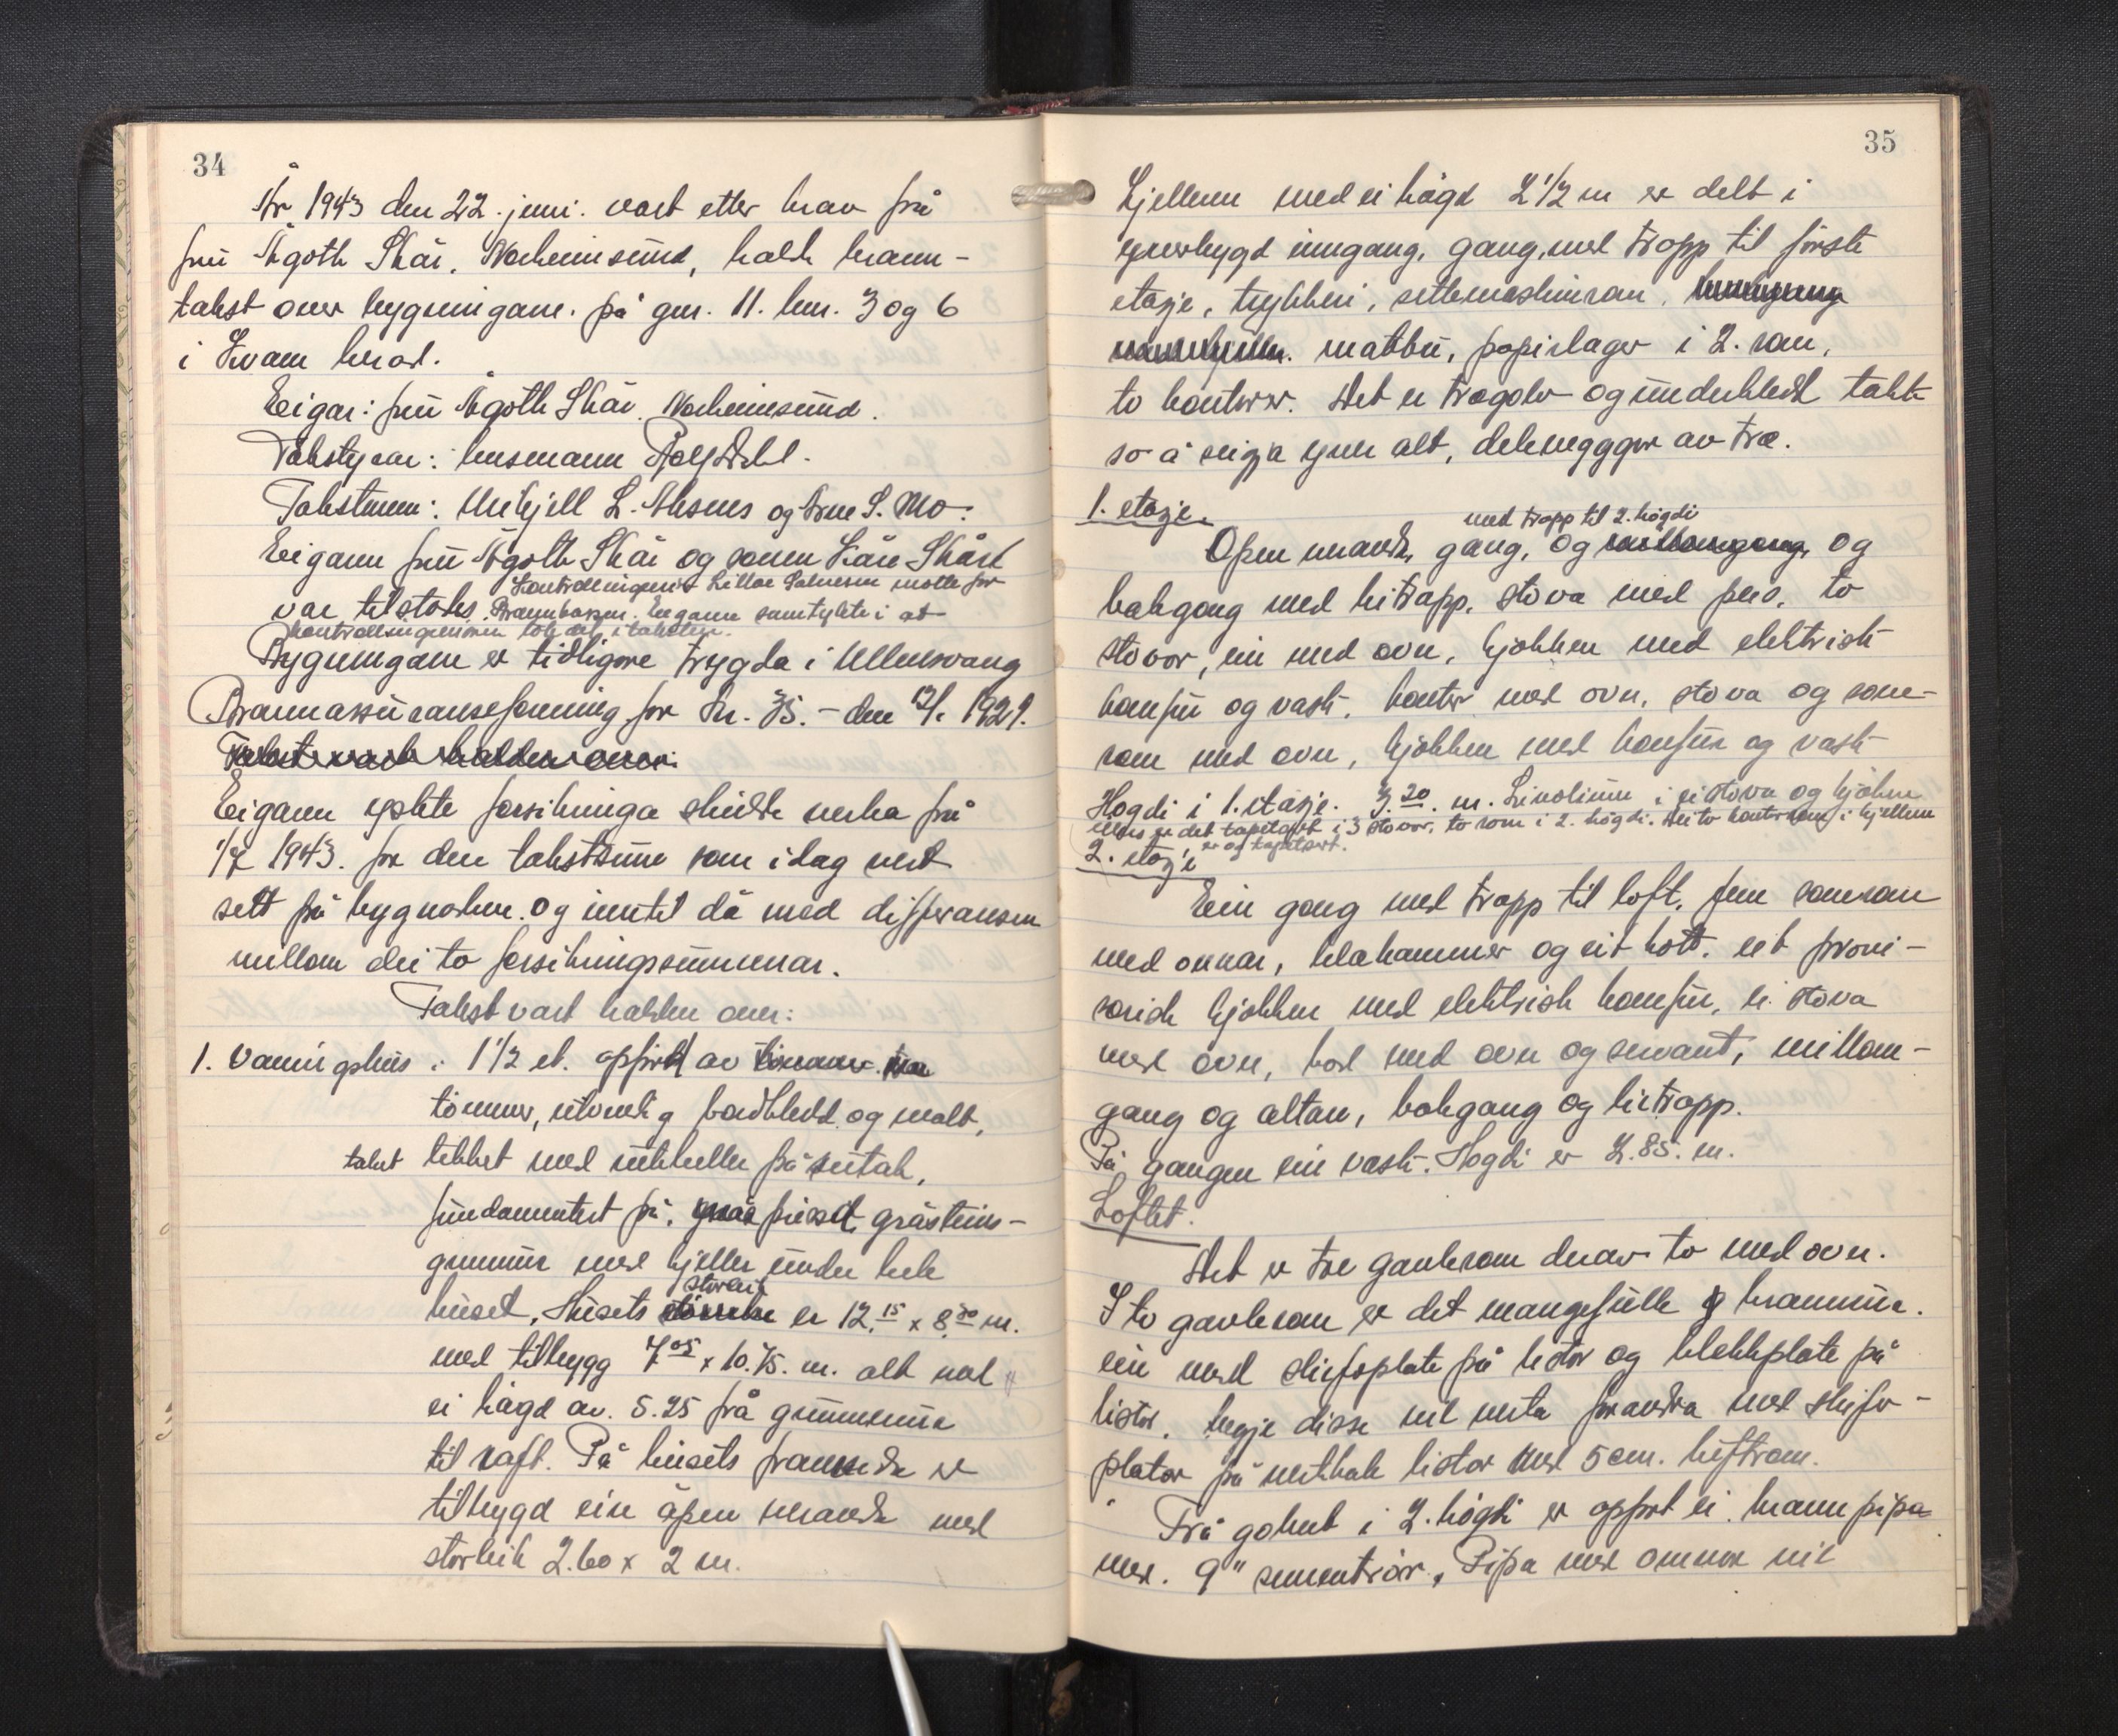 34
År 1943 den 22. juni. vart etter krav frå
fru Ågoth Skår, Norheimsund, halde brann-
takst over bygningane på gnr. 11. bnr. 3 og 6
i Kvam herad.
Eigar: fru Ågoth Skår. Norheimsund.
Takstyrar: lensmann
Takstmenn: L. Aksnes og Arne S. Mo.
Eigaren fru Ågoth Skår og sonen Kåre Skår
Kontrollingeniør Salvesen møtte for
var tilstades. Brannkassen. Eigaren samtykte i at
kontrollingeniøren tok del i taksten.
Bygningane er tidligare trygda i Ullensvang
Brannassuranseforening for kr. 35. - den 1929.
Takst vart halden over:
Eigaren ynskte forsikringa skulde verka frå
1/7 1943. for den takstsum som idag vert
sett på bygnaden. og inntil då med differansen
millom dei to forsikringssummar.
Takst vart halden over:
1. Vaningshus: 1 1/2 et. oppført av
tømmer, utvendig bordkledd og malt,
taket tekket med på sutak,
fundamentert på pussa gråsteins-
grunnmur med kjeller under hele
storleik
huset. Husets er 12.15 x 8.80 m.
med tilbygg 7.05 x 10.75. m. alt med
ei høgd av. 5.25 frå grunnmuren
til raft. På husets framside er
tilbygd ein åpen veranda med
storleik 2.60 x 2 m.
35
Kjelleren med ei høgd 2 1/2 m er delt i
yverbygd inngang, gang, med trapp til første
etasje, trykkeri, settemaskinrom,
matbu, papirlager i 2. rom,
to kontorer. Det er tregolv og underkledt tak
so å seija yver alt, delevegger av tre.
1. etasje.
med trapp til 2. høgdi
Open veranda, gang, og og
bakgang med bitrapp. stova med peis, to
stover, ein med ovn, kjøkken med elektrisk
komfur og vask. kontor med ovn, stova og sove-
rom med ovn, kjøkken med komfur og vask
Høgdi i 1. etasje. 3.20 m. Linolium i ei stova og kjøken
elles er det tapetsert i 3 stover, to rom i 2. høgdi. Dei to kontorrom i kjelleren
er og tapetsert.
2. etasje
Ein gang med trapp til loft, fem soverom
med omnar, klekammer og eit kott. eit provi-
sorisk kjøkken med elektrisk komfur, ei stova
med ovn, bad med ovn og servant, millom-
gang og altan, bakgang og bitrapp.
På gangen ein vask. Høgdi er 2.85. m.
Loftet.
Det er tre gavlerom derav to med ovn.
I to gavlerom er det mangefulle brannmur.
ein med skifsplate på lister og blekkplate på
lister. begje disse vil verta forandra med skifer-
plator på vertikale lister med 5 cm. luftrom.
Frå golvet i 2. høgdi er oppført ei brannpipa
med. 9" sementrør. Pipa med omnar vil